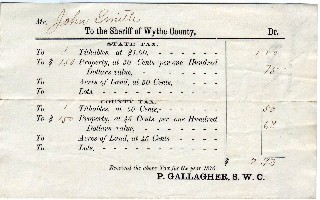 Mr. John Smith
To the Sheriff of Wythe County, Dr.
STATE TAX.
To 1 Tithables, at $1.00, - - - - - -
To $ 150 Property, at 50 Cents per one Hundred
Dollars value, - - - - - - 75
To Acres of Land, at 50 Cents, - - - - -
To Lots, - - - - - - - - -
COUNTY TAX.
To 1 Tithables, at 50 Cents, - - - - - 50
To $ 150 Property, at 45 Cents per one Hundred
Dollars value, - - - - - -
To Acres of Land, at 45 Cents - - - - -
To Lots, - - - - - - - - -
$
Received the above Tax for the year
P. GALLAGHER, S. W. C.